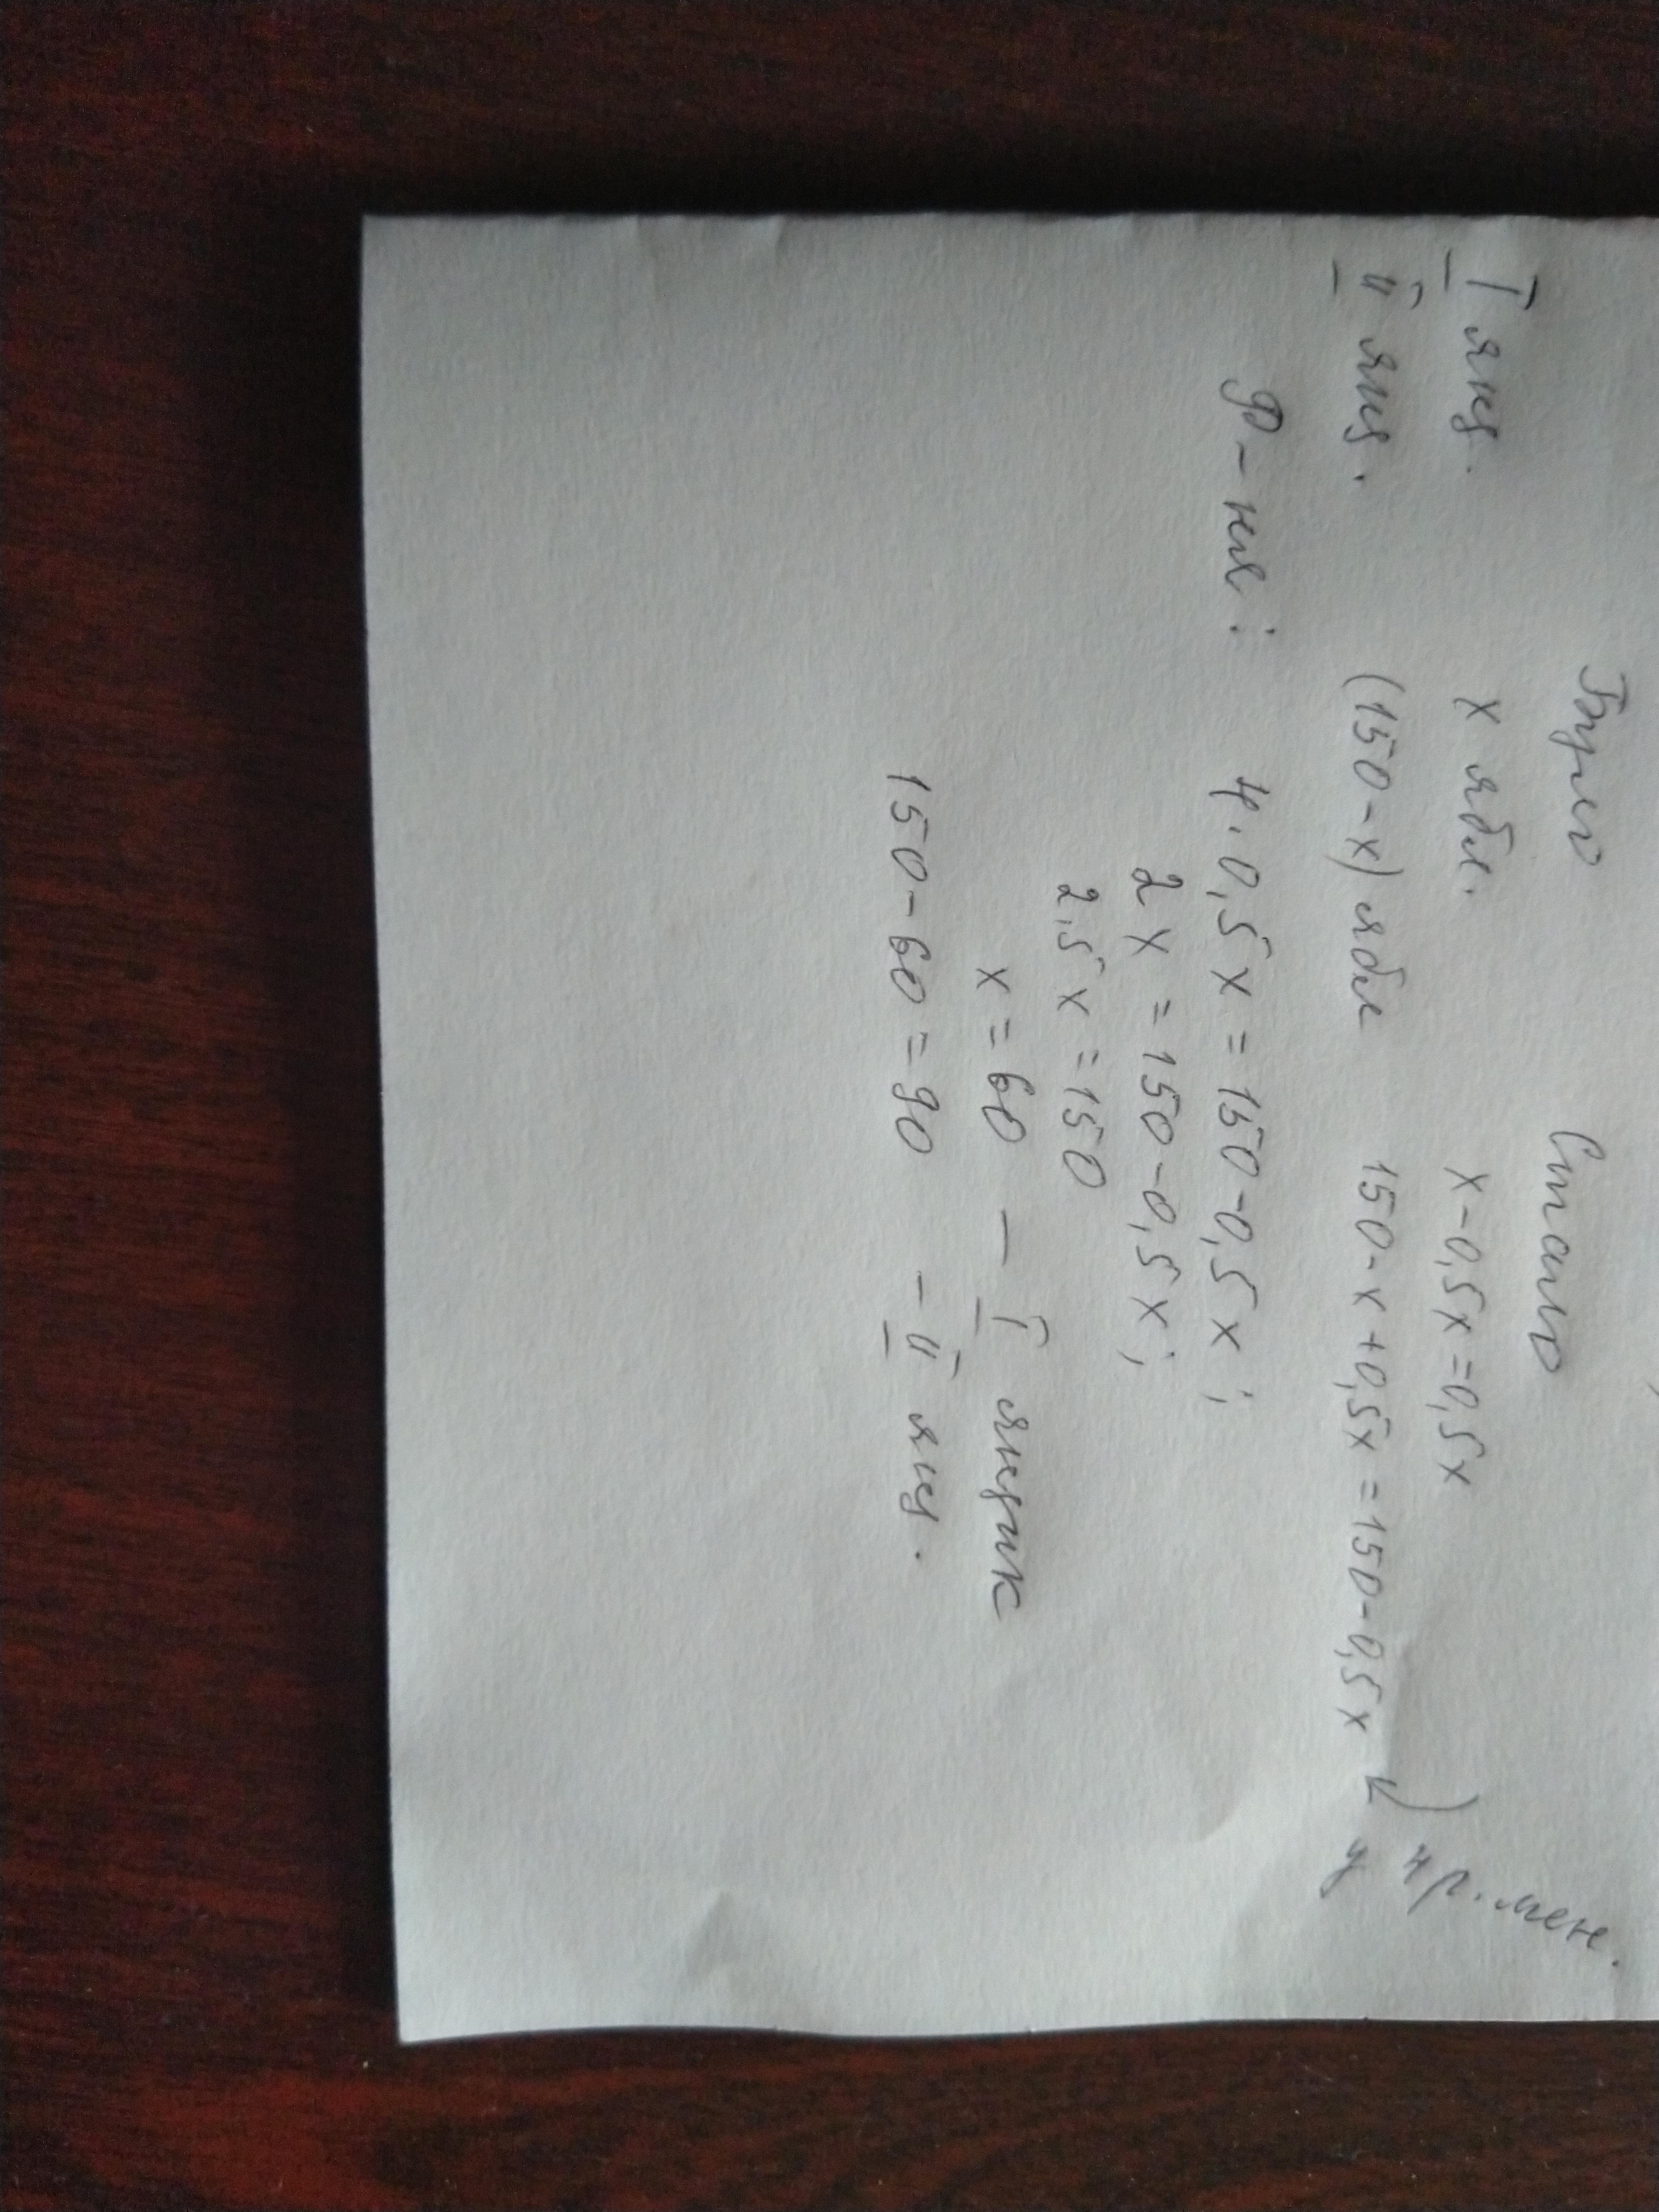 Було Стало
I ящ. x ябл. x-0,5x=0,5x
II ящ. (150-x) ябл 150-x+0,5x=150-0,5x
4 р. мен.
4·0,5x=150-0,5x;
2x=150-0,5x;
2,5x=150
x=60 - I ящик
150-60=90 - II ящ.